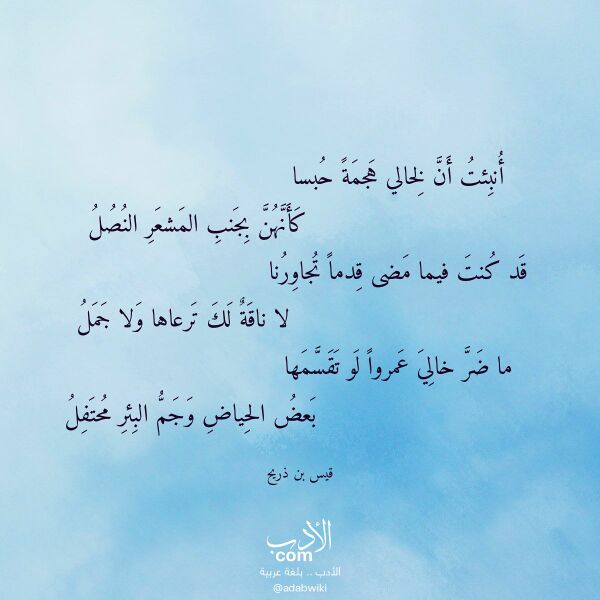 أُنبِئتُ أَنَّ لِخالي هَجمَةً حُبسا
كَأَنَّهُنَّ بِجَنبِ المَشعَرِ النُصُلُ
قَد كُنتَ فيما مَضى قِدماً تُجاوِرُنا
لا ناقَةٌ لَكَ تَرعاها وَلا جَمَلُ
ما ضَرَّ خالِيَ عَمرواً لَو تَقَسَّمَها
بَعضُ الحِياضِ وَجَمُّ البِئرِ مُحتَفِلُ
قيس بن ذريح
الأدب
com
الأدب .. بلغة عربية
@adabwiki